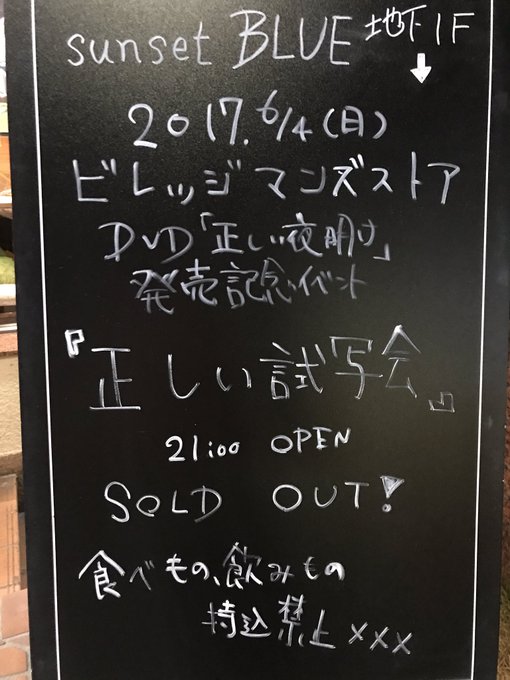 sunset BLUE 地下1F
↓
2017.6/4(日)
ビレッジマンズストア
DVD「正しい夜明け」
発売記念イベント
『正しい試写会』
21:00 OPEN
SOLD OUT!
食べもの、飲みもの
持込禁止×××